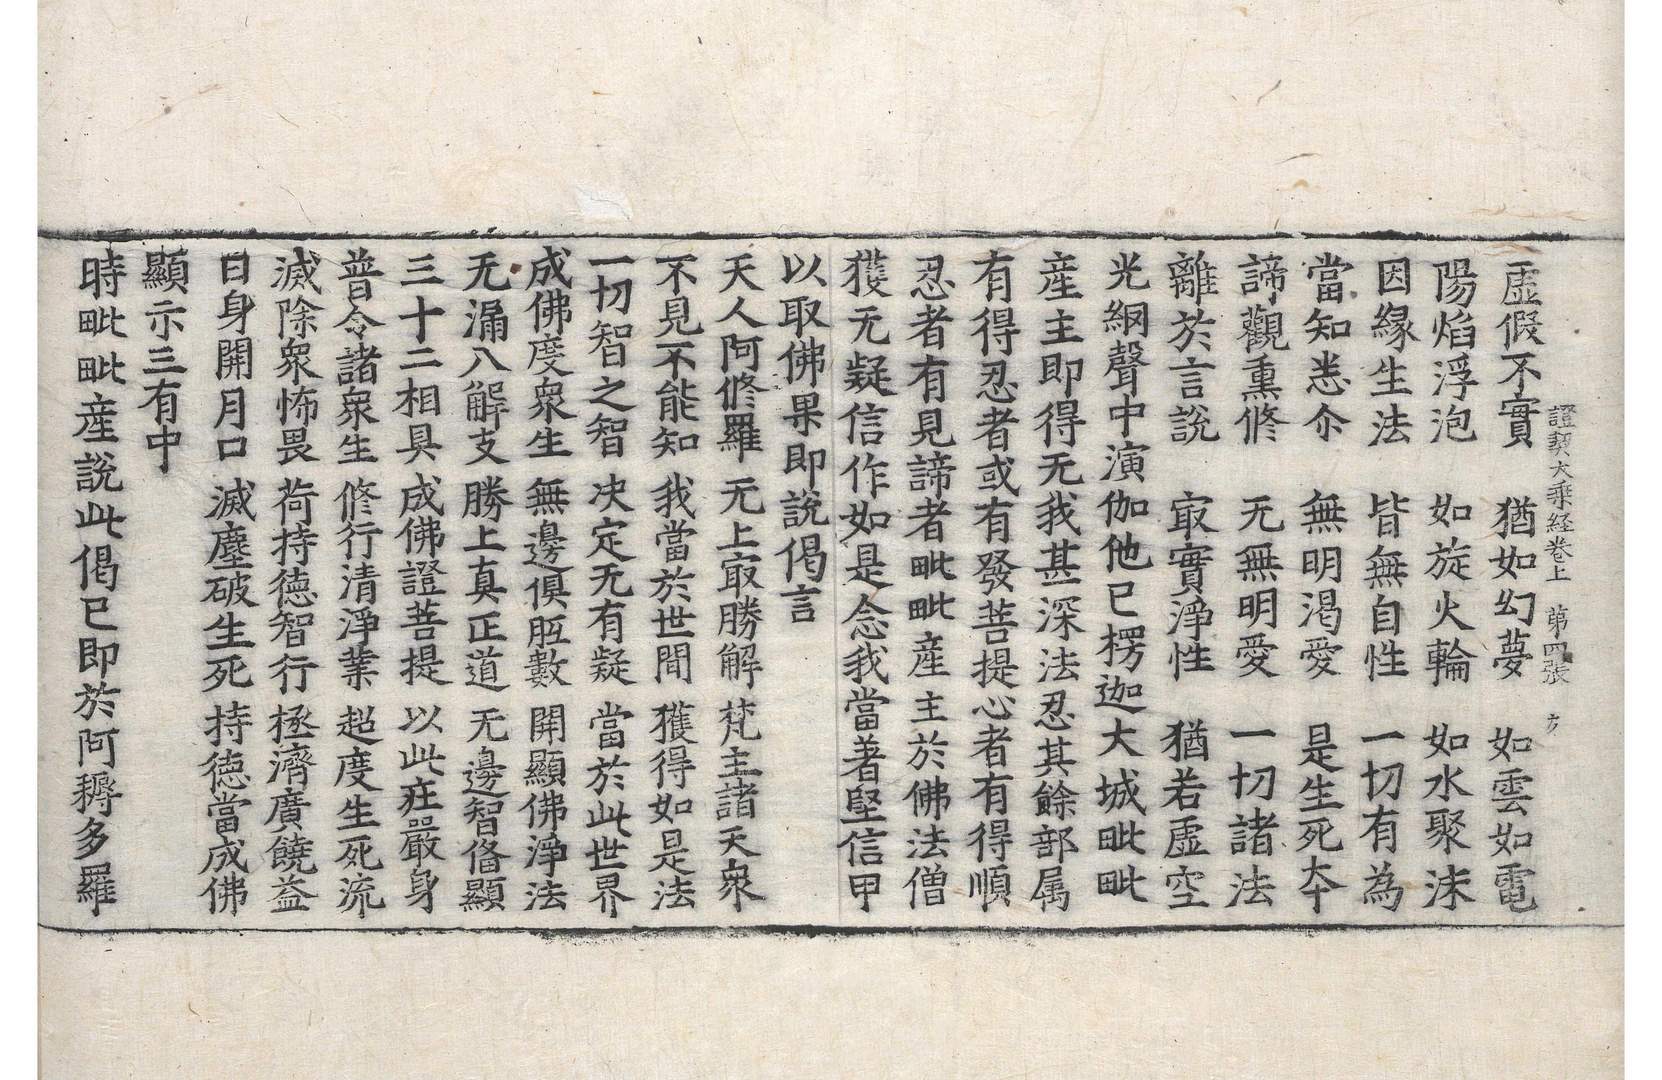 證契大乘經卷上　第四張　方
虛假不實　猶如幻夢　如雲如電
陽焰浮泡　如旋火輪　如水聚沫
因緣生法　皆無自性　一切有為
當知悉尒　無明渴愛　是生死夲
諦觀熏修　无無明愛　一切諸法
離於言說　㝡實淨性　猶若虛空
光網聲中演伽他已楞迦大城毗毗
産主即得无我甚深法忍其餘部属
有得忍者或有發菩提心者有得順
忍者有見諦者毗毗産主於佛法僧
獲无疑信作如是念我當著堅信甲
以取佛果即說偈言
天人阿修羅　无上㝡勝解　梵主諸天衆
不見不能知　我當於世間　獲得如是法
一切智之智　決定无有疑　當於此世界
成佛度衆生　無邊俱胝數　開顯佛淨法
无漏八解支　勝上真正道　无邊智俻顯
三十二相具　成佛證菩提　以此莊嚴身
普令諸衆生　修行清淨業　超度生死流
滅除衆怖畏　荷持德智行　拯濟廣饒益
日身開月口　滅塵破生死　持德當成佛
顯示三有中
時毗毗産說此偈已即於阿耨多羅